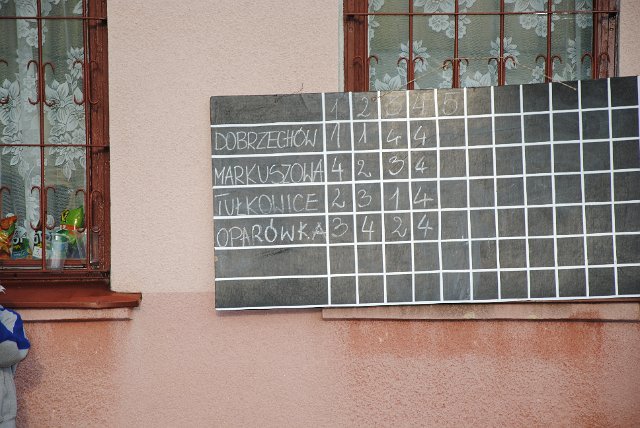 1 2 3 4 5
DOBRZECHÓW 1 1 4 4
MARKUSZOWA 4 2 3 4
TUŁKOWICE 2 3 1 4
OPARÓWKA 3 4 2 4